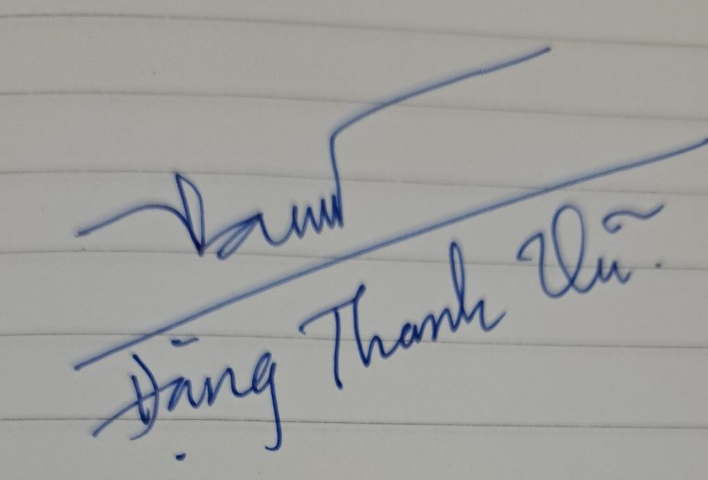 Đặng Thanh Vũ.